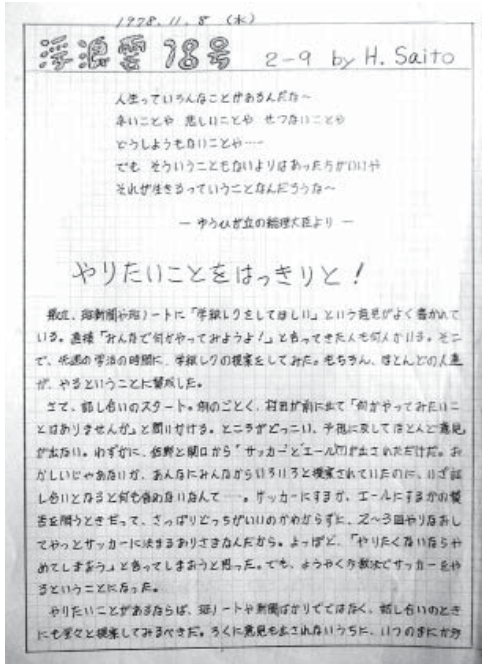 1978.11.8 (水)
浮浪雲 78号 2-9 by H. Saito
人生っていろんなことがあるんだな〜
辛いことや 悲しいことや せつないことや
どうしようもないことや……
でも そういうこともないよりはあったほうがいいや
それが生きるっていうことなんだろうな〜
― ゆうひが丘の総理大臣より ―
やりたいことをはっきりと！
最近、班新聞や班ノートに「学級レクをしてほしい」という意見がよく書かれて
いる。直接「みんなで何かやってみようよ！」と言ってきた人も何人かいる。そこ
で、先週の学活の時間に、学級レクの提案をしてみた。もちろん、ほとんどの人達
が、やるということに賛成した。
さて、話し合いのスタート。例のごとく、村田が前に出て「何かやってみたいこ
とはありませんか」と問いかける。ところがどっこい、予想に反してほとんど意見
が出ない。わずかに、佐野と関口から「サッカー」と「エール」が出されただけだ。お
かしいじゃあないか、あんなにみんなからいろいろと提案されていたのに、いざ話
し合いとなると何も言わないなんて……。サッカーにするか、エールにするかの賛
否を問うときだって、さっぱりどっちがいいのかわからずに、2〜3回やりなおし
てやっとサッカーに決まるありさまなんだから。よっぽど、「やりたくないならや
めてしまおう」と言ってしまおうと思った。でも、ようやく多数決でサッカーをや
るということになった。
やりたいことがあるならば、班ノートや新聞ばかりでではなく、話し合いのとき
にも堂々と提案してみるべきだ。ろくに意見も出されないうちに、いつのまにか多